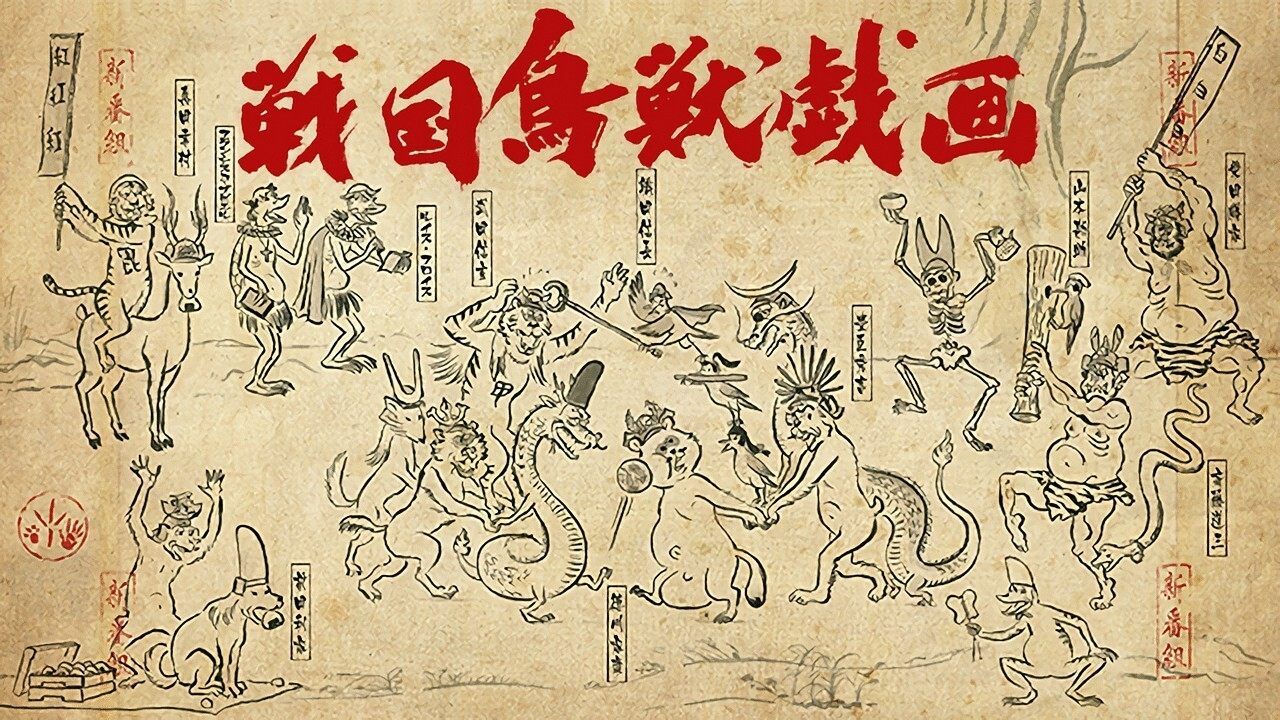 戦国鳥獣戯画
新番組
新番組
真田幸村
ルイス・フロイス
武田信玄
織田信長
山本勘助
柴田勝家
豊臣秀吉
毘
甲
斎藤道三
前田利家
徳川家康
新番組
新番組